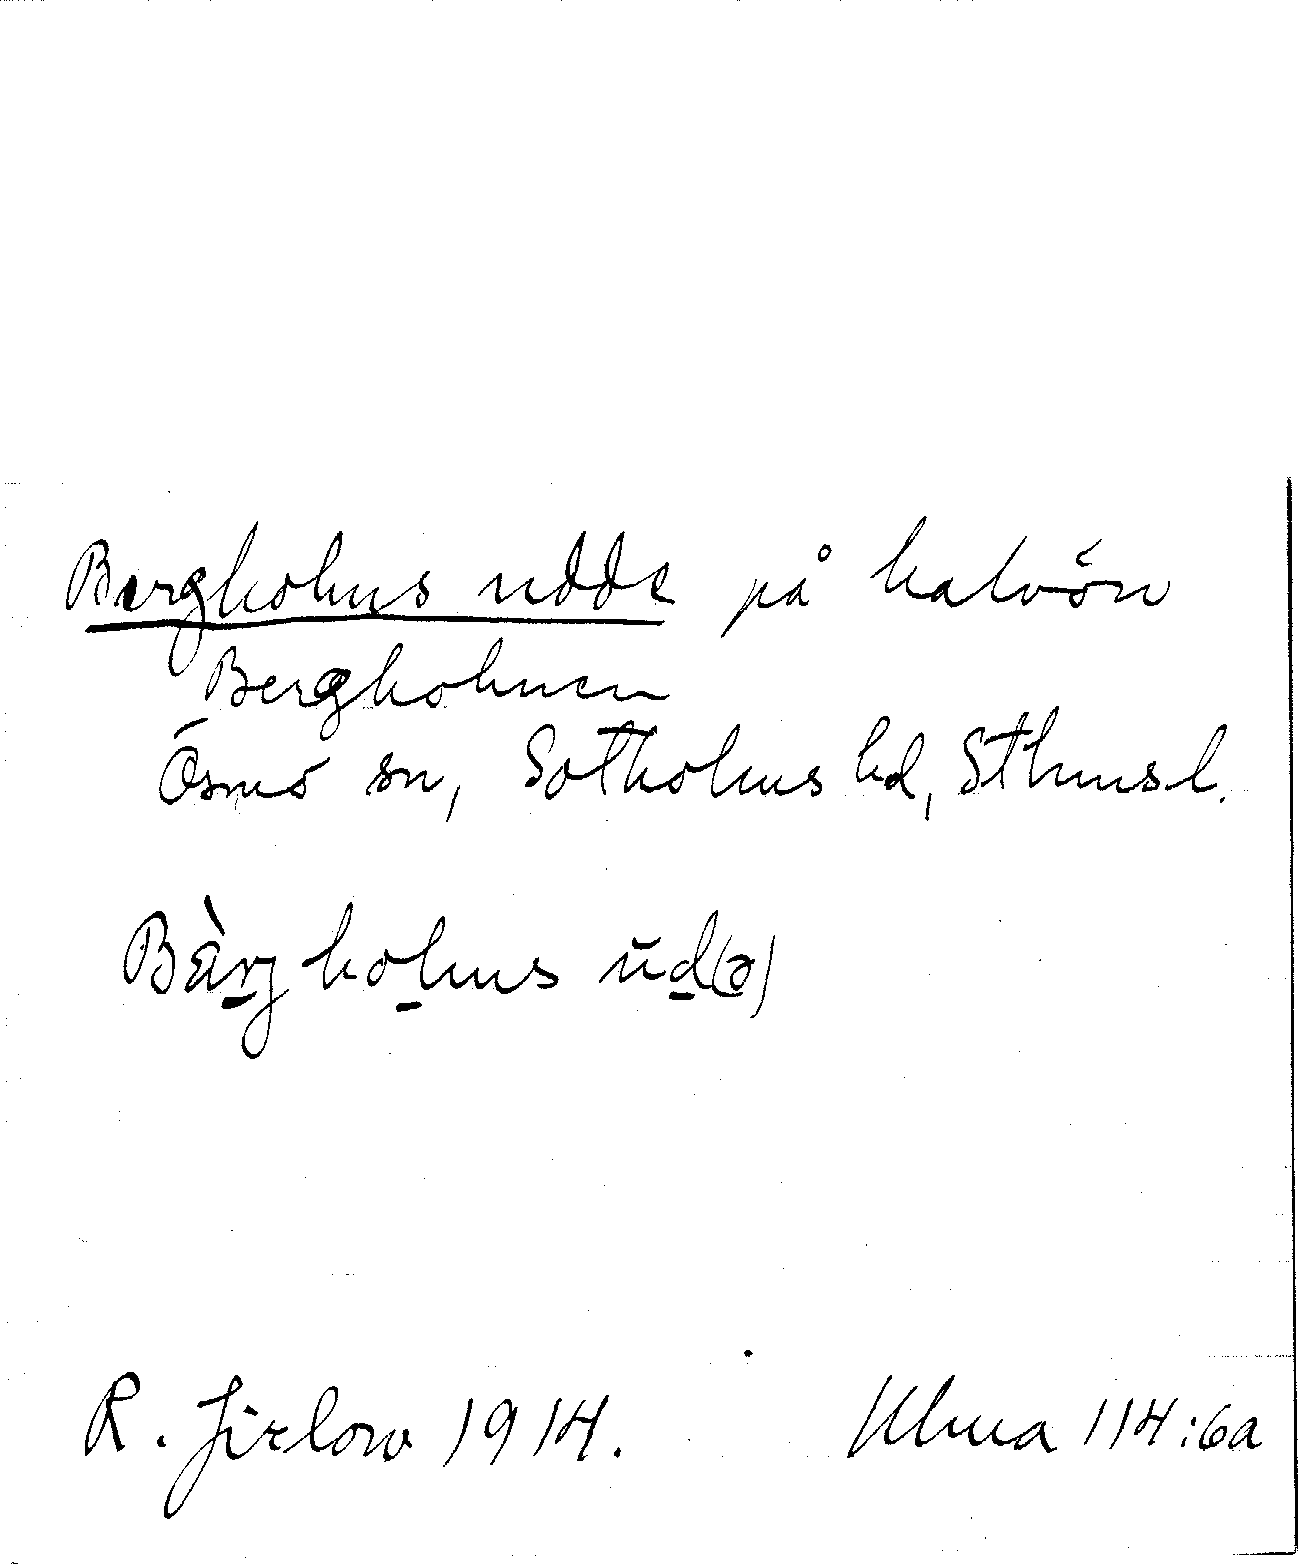 Bergholms udde på halvön
Bergholmen
Ösmo sn, Sotholms hd, Sthms l.
Bàrjholms ud(ə)
R. Jirlow 1914. Ulma 114:6a